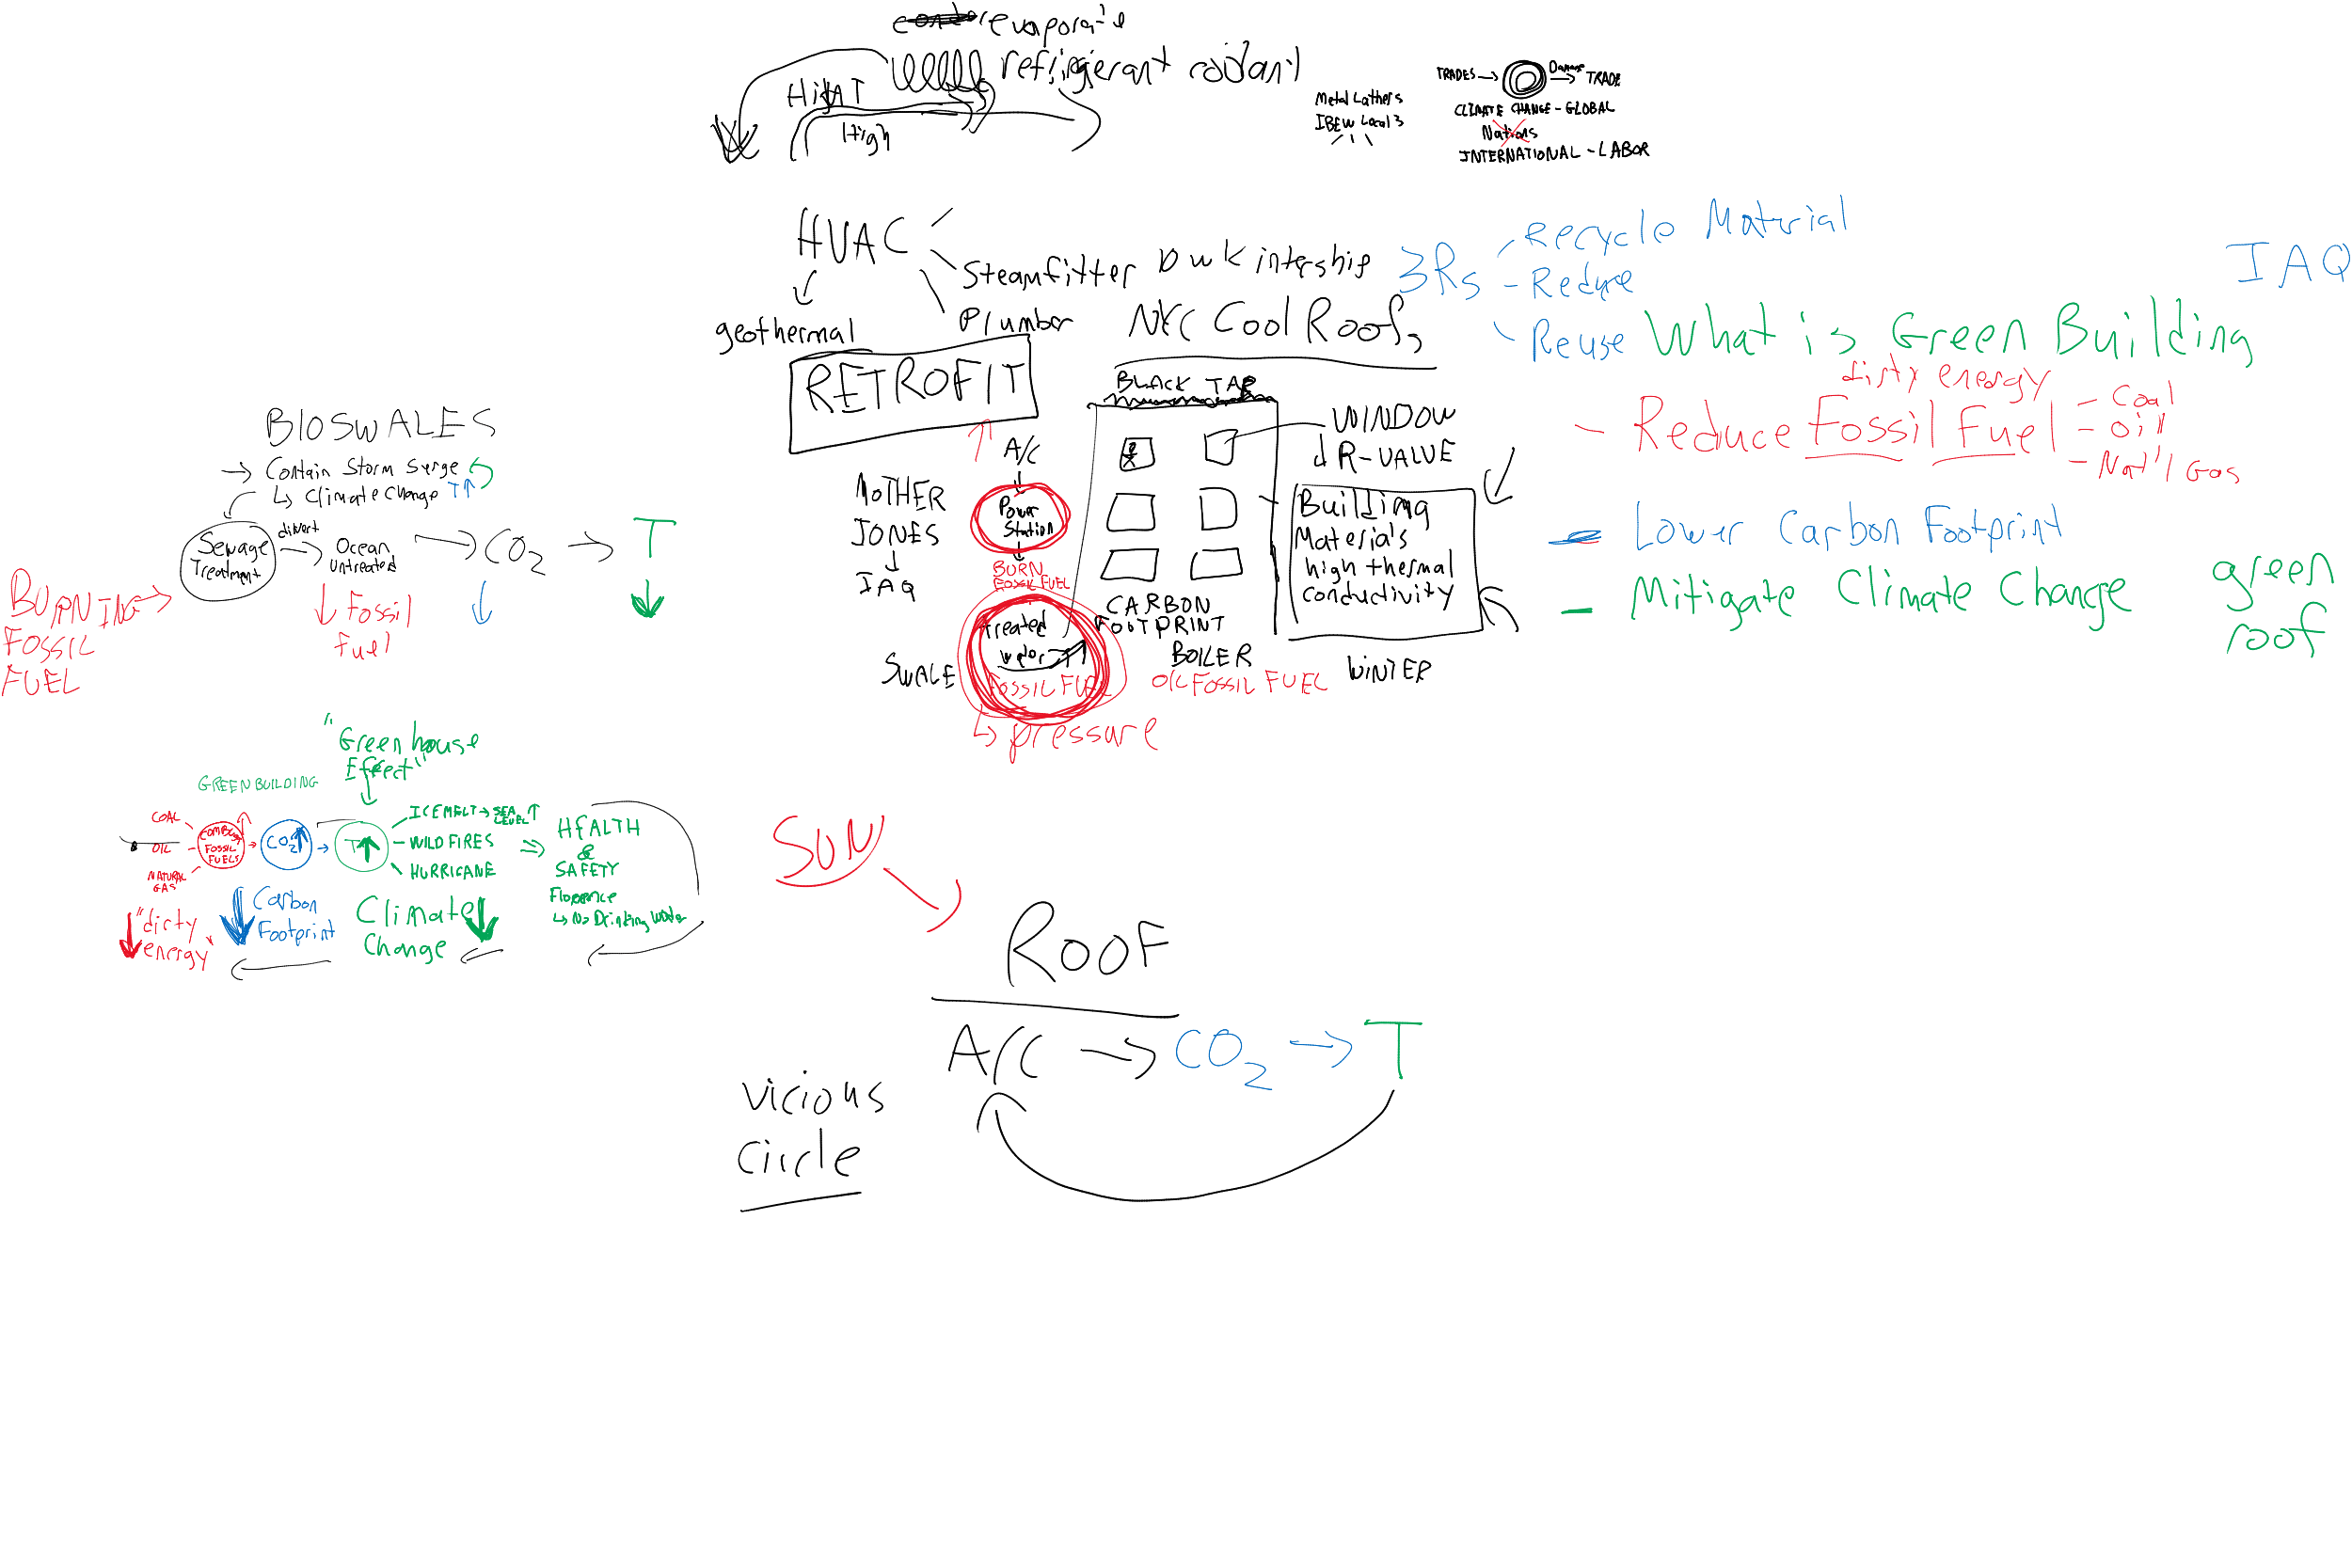 evaporate
refrigerant coolant
High T
High
Metal Lathers
IBEW Local 3
TRADES → Damage → TRADE
CLIMATE CHANGE - GLOBAL
Nations
INTERNATIONAL - LABOR
HVAC
Steamfitter
Plumber
geothermal
RETROFIT
intership
NYC Cool Roofs
3Rs
Recycle Material
- Reduce
Reuse
IAQ
What is Green Building
dirty energy
- Reduce Fossil Fuel
- Coal
- Oil
- Nat'l Gas
- Lower Carbon Footprint
- Mitigate Climate Change
green
roof
BLACK TAR
WINDOW
↓ R-VALUE
Building
Materials
high thermal
conductivity
WINTER
A/C
Power
Station
BURN
FOSSIL FUEL
MOTHER
JONES
IAQ
Treated
water
FOSSIL FUEL
↳ pressure
SWALE
CARBON
FOOTPRINT
BOILER
OIL FOSSIL FUEL
BIOSWALES
→ Contain Storm Surge
↳ Climate Change T↑
Sewage
Treatment
divert
Ocean
Untreated
→ CO2 → T
↓ Fossil
fuel
BURNING
FOSSIL
FUEL
"Greenhouse
Effect"
GREEN BUILDING
COAL
OIL
NATURAL
GAS
FOSSIL
FUELS
CO2↑
T↑
ICE MELT → SEA LEVEL ↑
- WILD FIRES
HURRICANE
HEALTH
&
SAFETY
Florence
↳ No Drinking Water
↓ "dirty
energy"
↓ Carbon
Footprint
Climate ↓
Change
SUN
ROOF
A/C → CO2 → T
vicious
circle